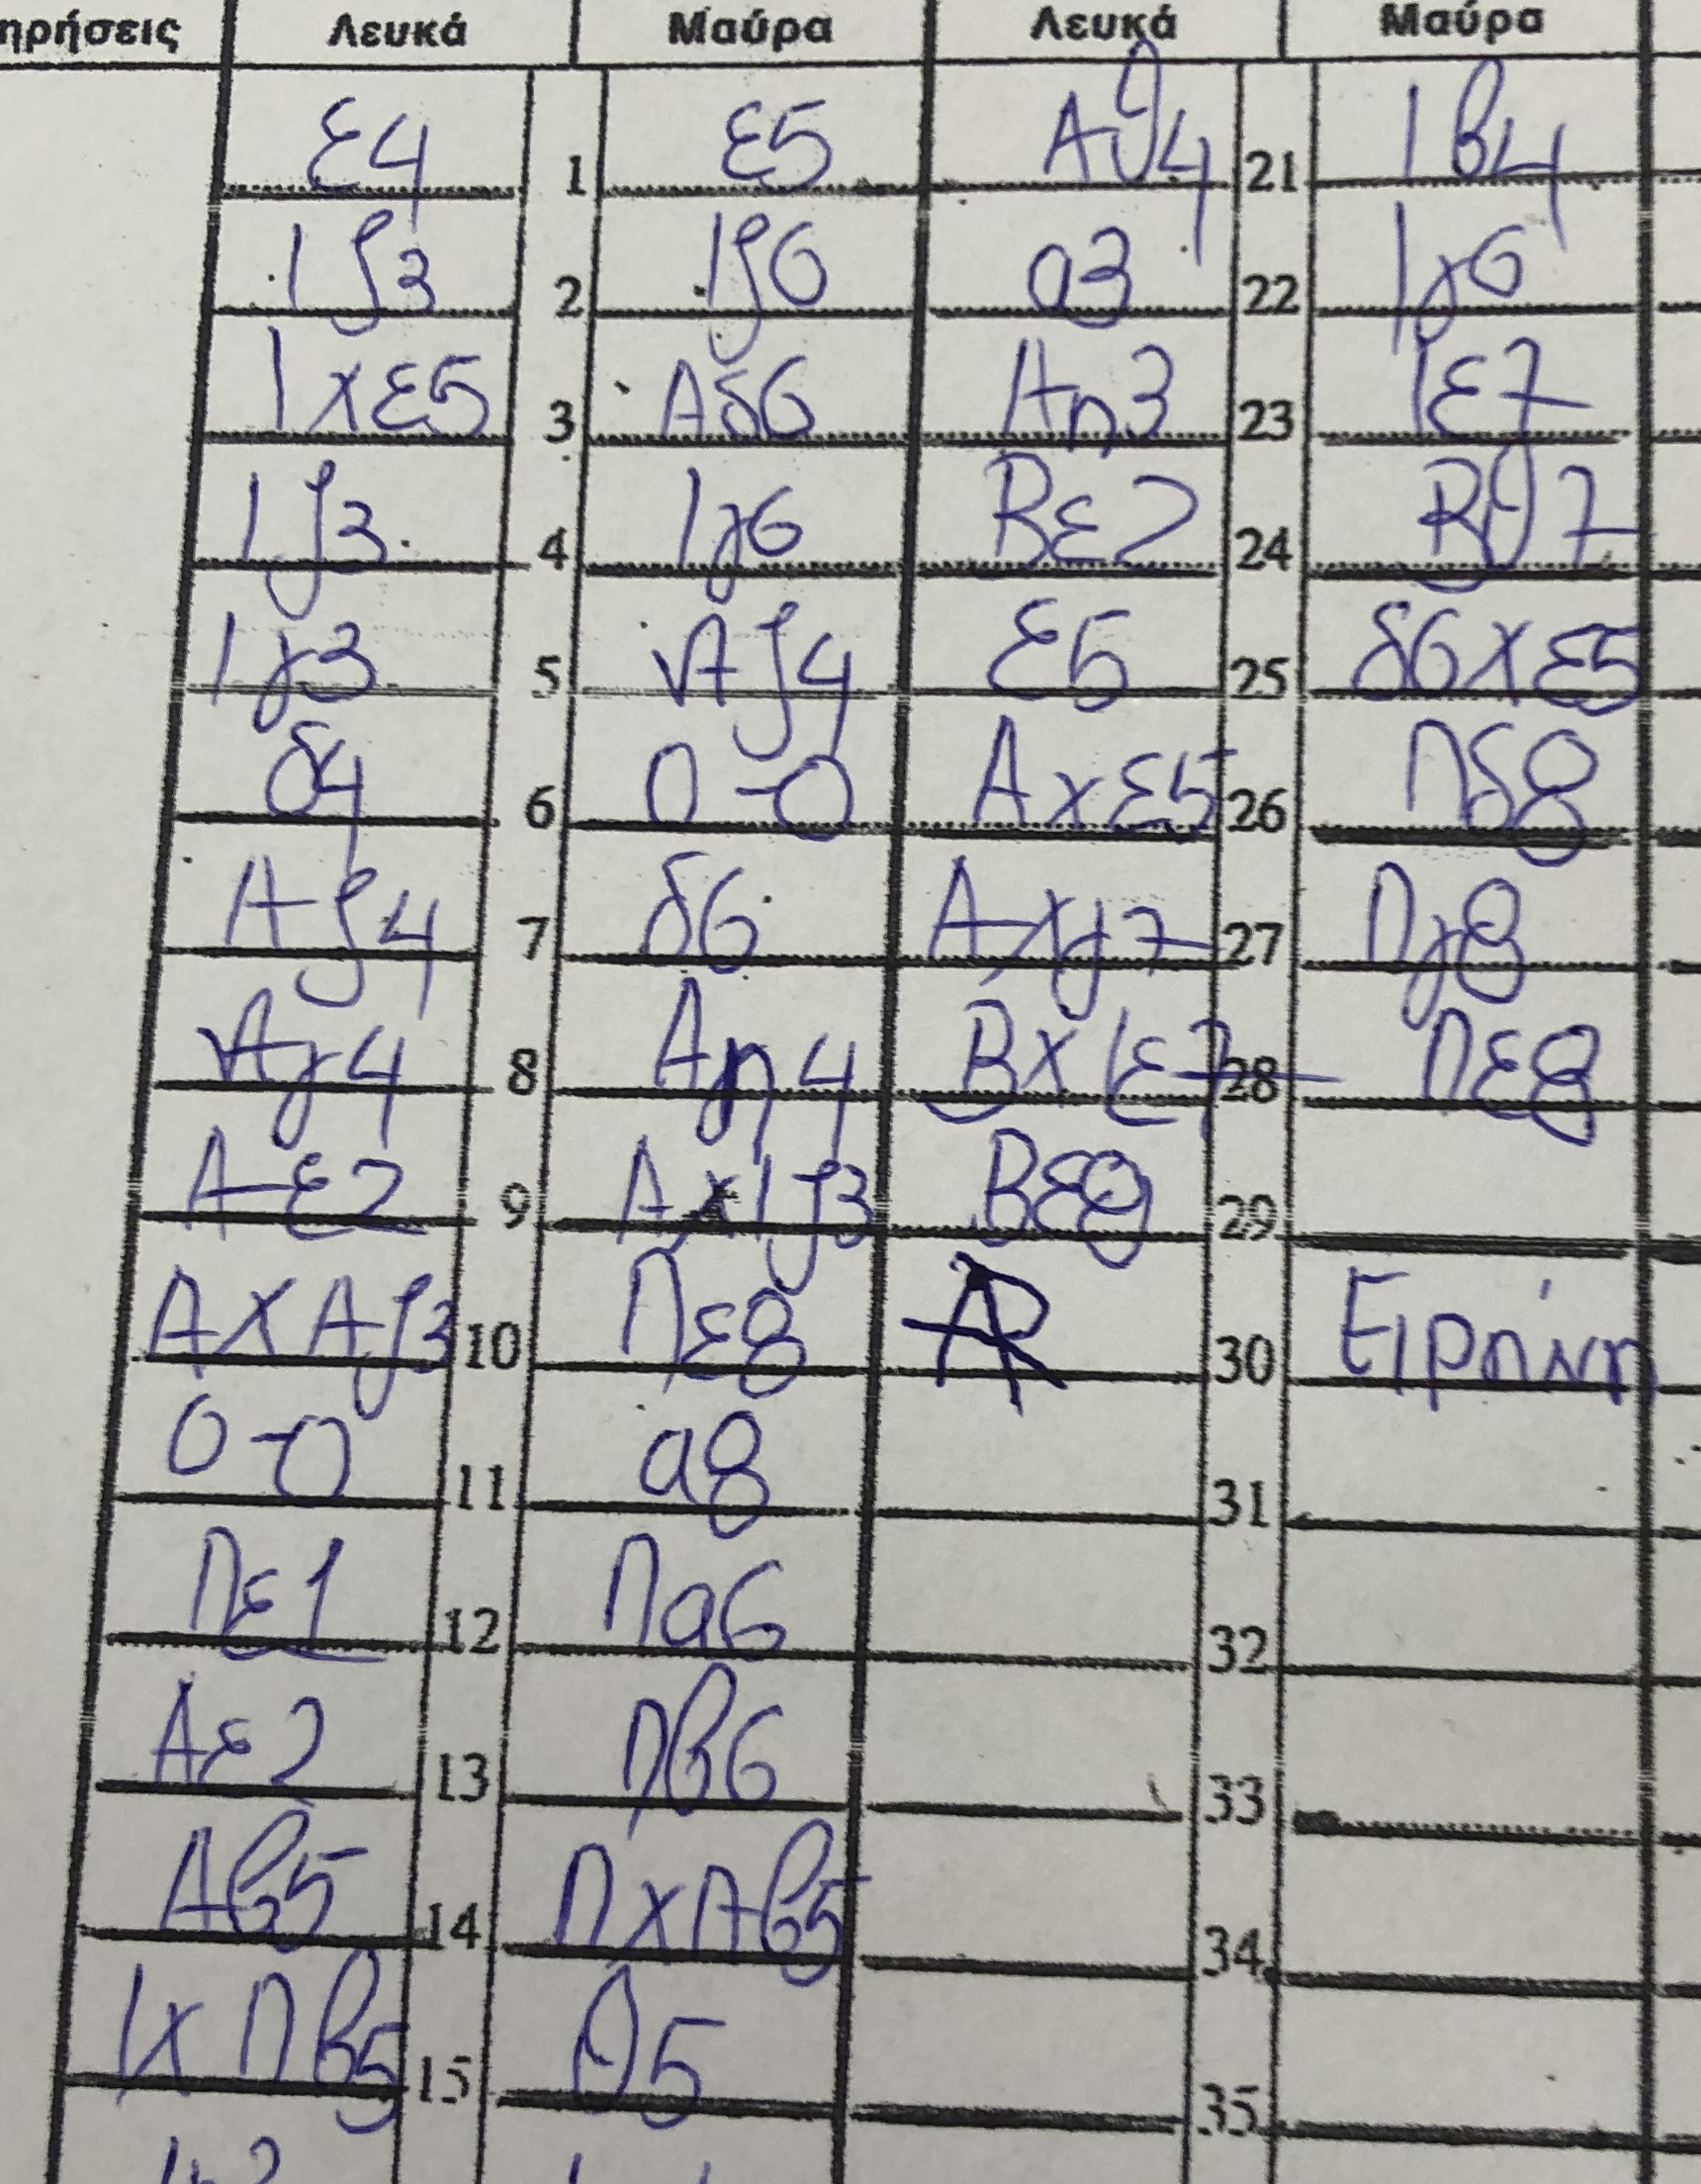 ηρήσεις Λευκά Μαύρα Λευκά Μαύρα
ε4 1 ε5 Αθ4 21 Ιβ4
Ιζ3 2 Ιζ6 α3 22 Ιγ6
Ιχε5 3 Αδ6 Αη3 23 Ιε7
Ιζ3 4 Ιγ6 Βε2 24 Βθ7
Ιγ3 5 Αζ4 ε5 25 δ6χε5
δ4 6 0-0 Αχε5 26 Πδ8
Αζ4 7 δ6 Αχγ7 27 Πγ8
Αγ4 8 Αη4 ΒχΙε7 28 Πε8
Αε2 9 ΑχΙζ3 Βε8 29
ΑΧΑζ3 10 Πε8 30 Ειρήνη
0-0 11 α8 31
Πε1 12 Πα6 32
Αε2 13 Πβ6 33
Αβ5 14 ΠχΑβ5 34
ΙχΠβ5 15 θ5 35